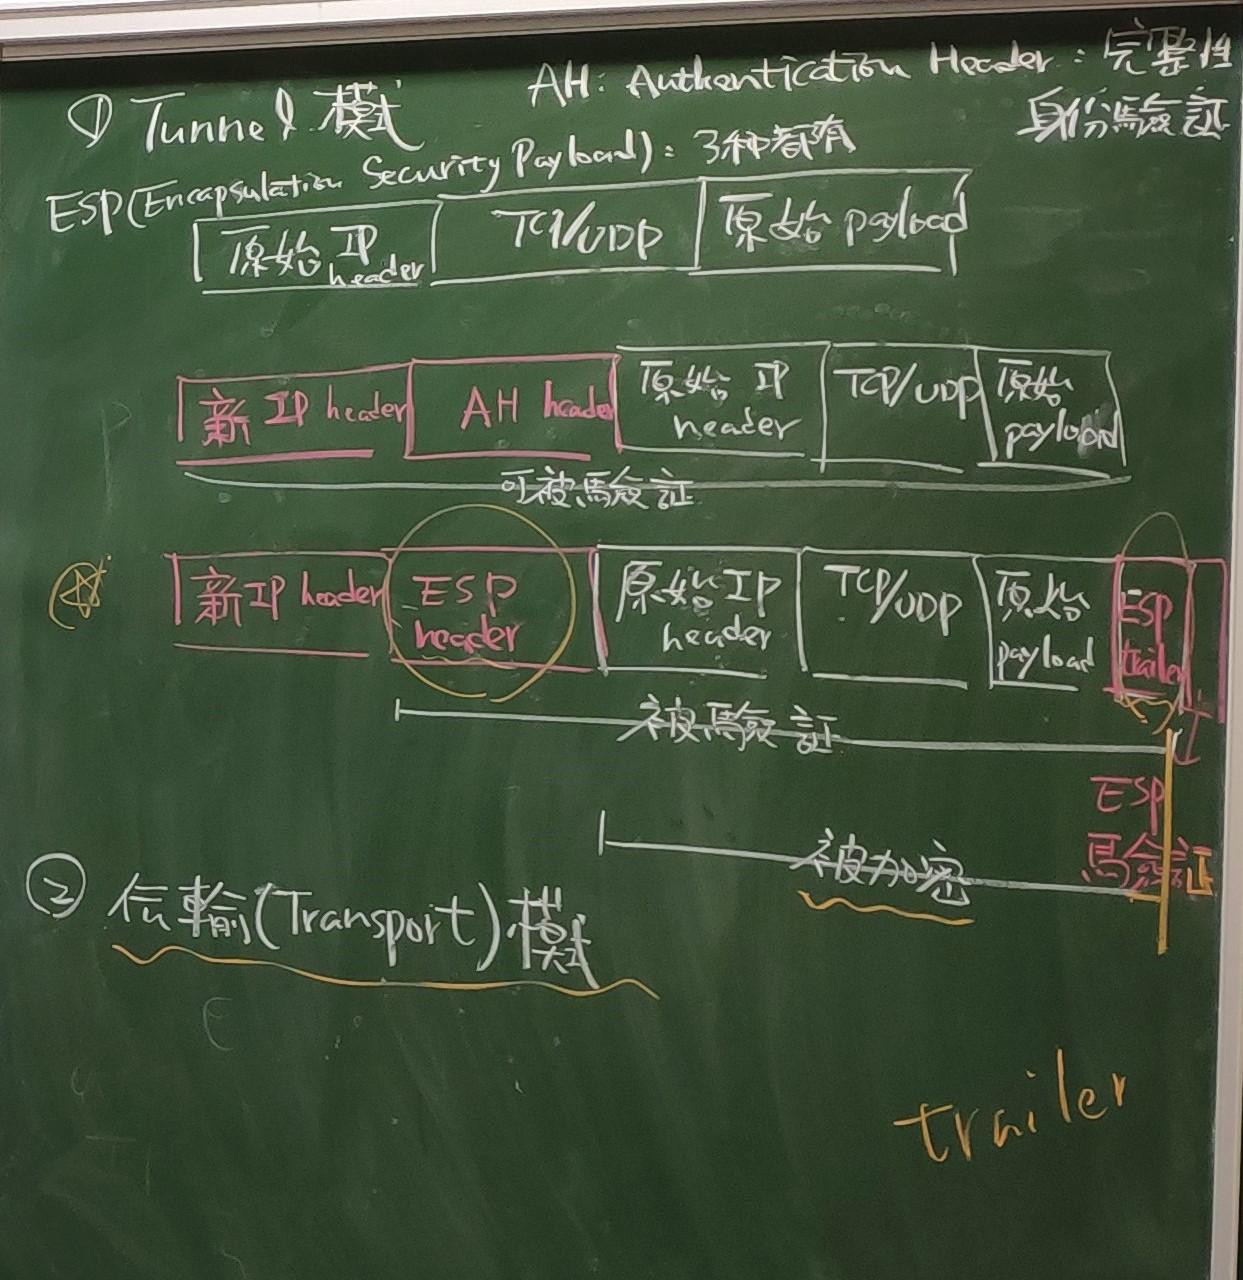 ① Tunnel 模式
AH: Authentication Header: 完整性
身份驗証
ESP(Encapsulation Security Payload): 3种都有
原始 IP header TCP/UDP 原始 payload
新 IP header AH header 原始 IP header TCP/UDP 原始 payload
可被驗証
新 IP header ESP header 原始 IP header TCP/UDP 原始 payload ESP trailer
被驗証
ESP
驗証
被加密
② 伝輸(Transport)模式
trailer